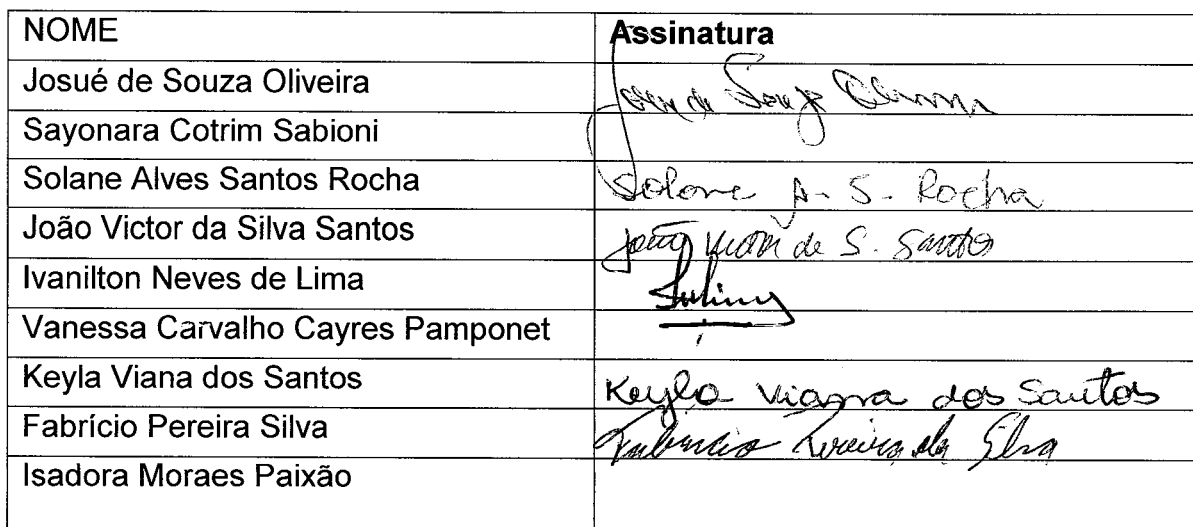 NOME Assinatura
Josué de Souza Oliveira Josué de Souza Oliveira
Sayonara Cotrim Sabioni
Solane Alves Santos Rocha Solane A. S. Rocha
João Victor da Silva Santos João Victor de S. Santos
Ivanilton Neves de Lima
Vanessa Carvalho Cayres Pamponet
Keyla Viana dos Santos Keyla Viana dos Santos
Fabrício Pereira Silva Fabrício Pereira da Silva
Isadora Moraes Paixão